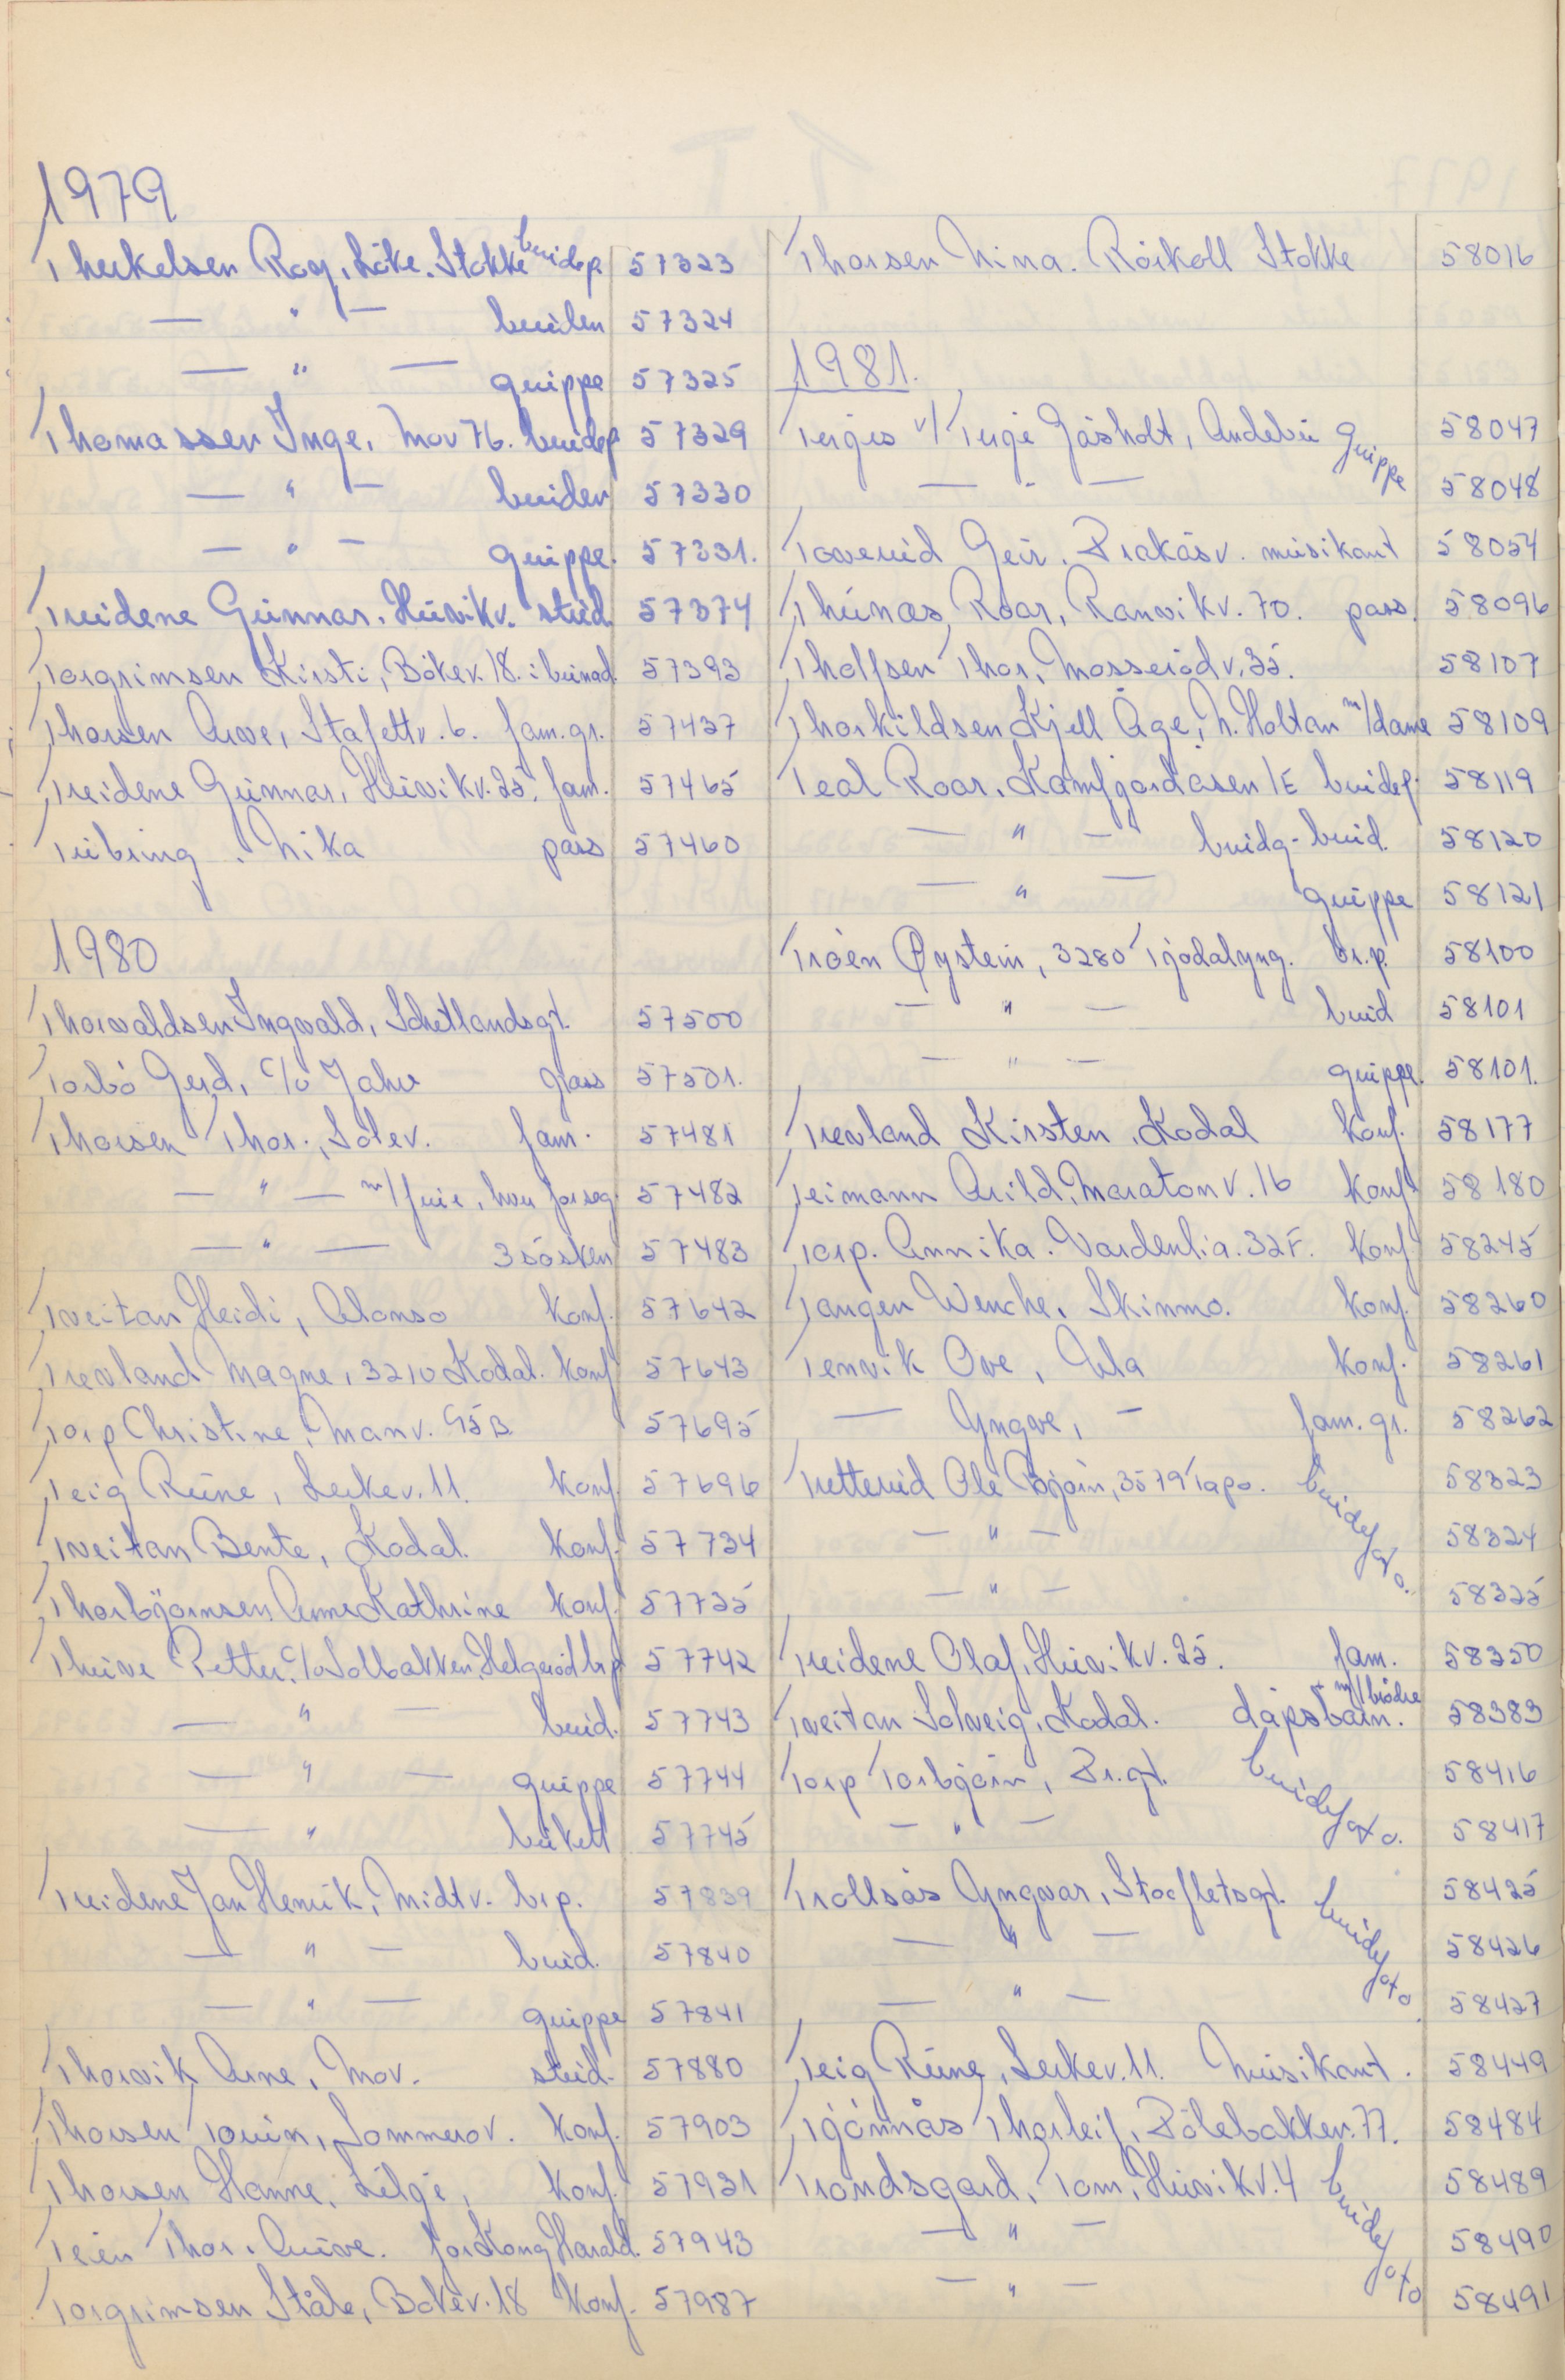 1979
Therkelsen Roy, Löke, Stokke brudep. 57323
— " — bruden 57324
— " — gruppe 57325
Thomassen Inge, Mov 76. brudep 57329
— " — bruden 57330
— " — gruppe. 57331.
Treidene Gunnar, Huvikv. stud. 57374
Torgrimsen Kirsti, Bökev. 18. i bunad. 57393
Thorsen Arve, Stafettv. 6. fam.gr. 57437
Treidene Gunnar, Huvikv. 25, fam. 57465
Nika pass 57460
1980
Thorvaldsen Ingvald, Schetlandsgt. 57500
Torbö Gerd, c/o Jahre pass 57501.
Thorsen Thor, Solev. fam. 57481
— " — m/frue, hver for seg. 57482
— " — 3 sösken 57483
Tveitan Heidi, Alonso konf. 57642
Trevland Magne, 3210 Kodal. konf 57643
Torp Christine, Manv. 95B 57695
Teig Rune, Lerkev. 11. konf 57696
Tveitan Bente, Kodal. konf. 57734
Thorbjörnsen Anne Kathrine konf. 57735
Thrine Petter, c/o Solbakken, Helgeröd brp 57742
— " — brud. 57743
— " — gruppe 57744
— " — bukett 57745
Treidene Jan Henrik, Midtv. brp. 57839
— " — brud. 57840
— " — gruppe 57841
Thorvik Arne, Mov. stud. 57880
Thorsen Tourin, Sommerov. konf. 57903
Thorsen Hanne, Lilje, konf. 57931
Teien Thor. for Kong Harald. 57943
Torgrimsen Ståle, Bökev. 18 konf. 57987
Thorsen Nina. Röikoll Stokke 58016
1981.
Terjes v/ Terje Gåsholt, Andebu gruppe 58047
— " — 58048
Toverud Geir. Brakåsv. musikant 58054
Thunæs, Roar, Ranvikv. 70. pass. 58096
Tholfsen Thor, Mosserödv. 35. 58107
Thorkildsen Kjell Åge, N. Holtan m/dame 58109
Teal Roar, Kamfjordåsen 1E brudep. 58119
— " — brudg-brud. 58120
— " — gruppe 58121
Tröen Øystein, 3280 Tjodalyng. br.p. 58100
— " — brud 58101
— " — gruppe. 58101.
Trevland Kirsten, Kodal konf. 58177
Teimann Arild, Maratonv. 16 konf. 58180
Torp. Annika. Vardenlia. 32F. konf 58245
Tangen Wenche, Skinmo. konf. 58260
Tenvik Ove, Ula konf. 58261
— Yngve, — fam. gr. 58262
Tretterud Ole Björn, 3579 Torpo. brudef oto. 58323
— " — 58324
— " — 58325
Treidene Olaf, Huvikv. 25. fam. 58350
Tveitan Solveig, Kodal. dåpsbarn. m/brödre 58383
Torp Torbjörn, Br.gt. brudef oto. 58416
— " — 58417
Trollsås Yngvar, Stoefletsgt. brudefoto 58425
— " — 58426
— " — 58427
Teig Rune, Lerkev. 11. Musikant. 58449
Tjönnås Thorleif, Bölebakken. 77. 58484
Trondsgard, Tom, Huvikv. 4 brudefoto 58489
— " — 58490
— " — 58491